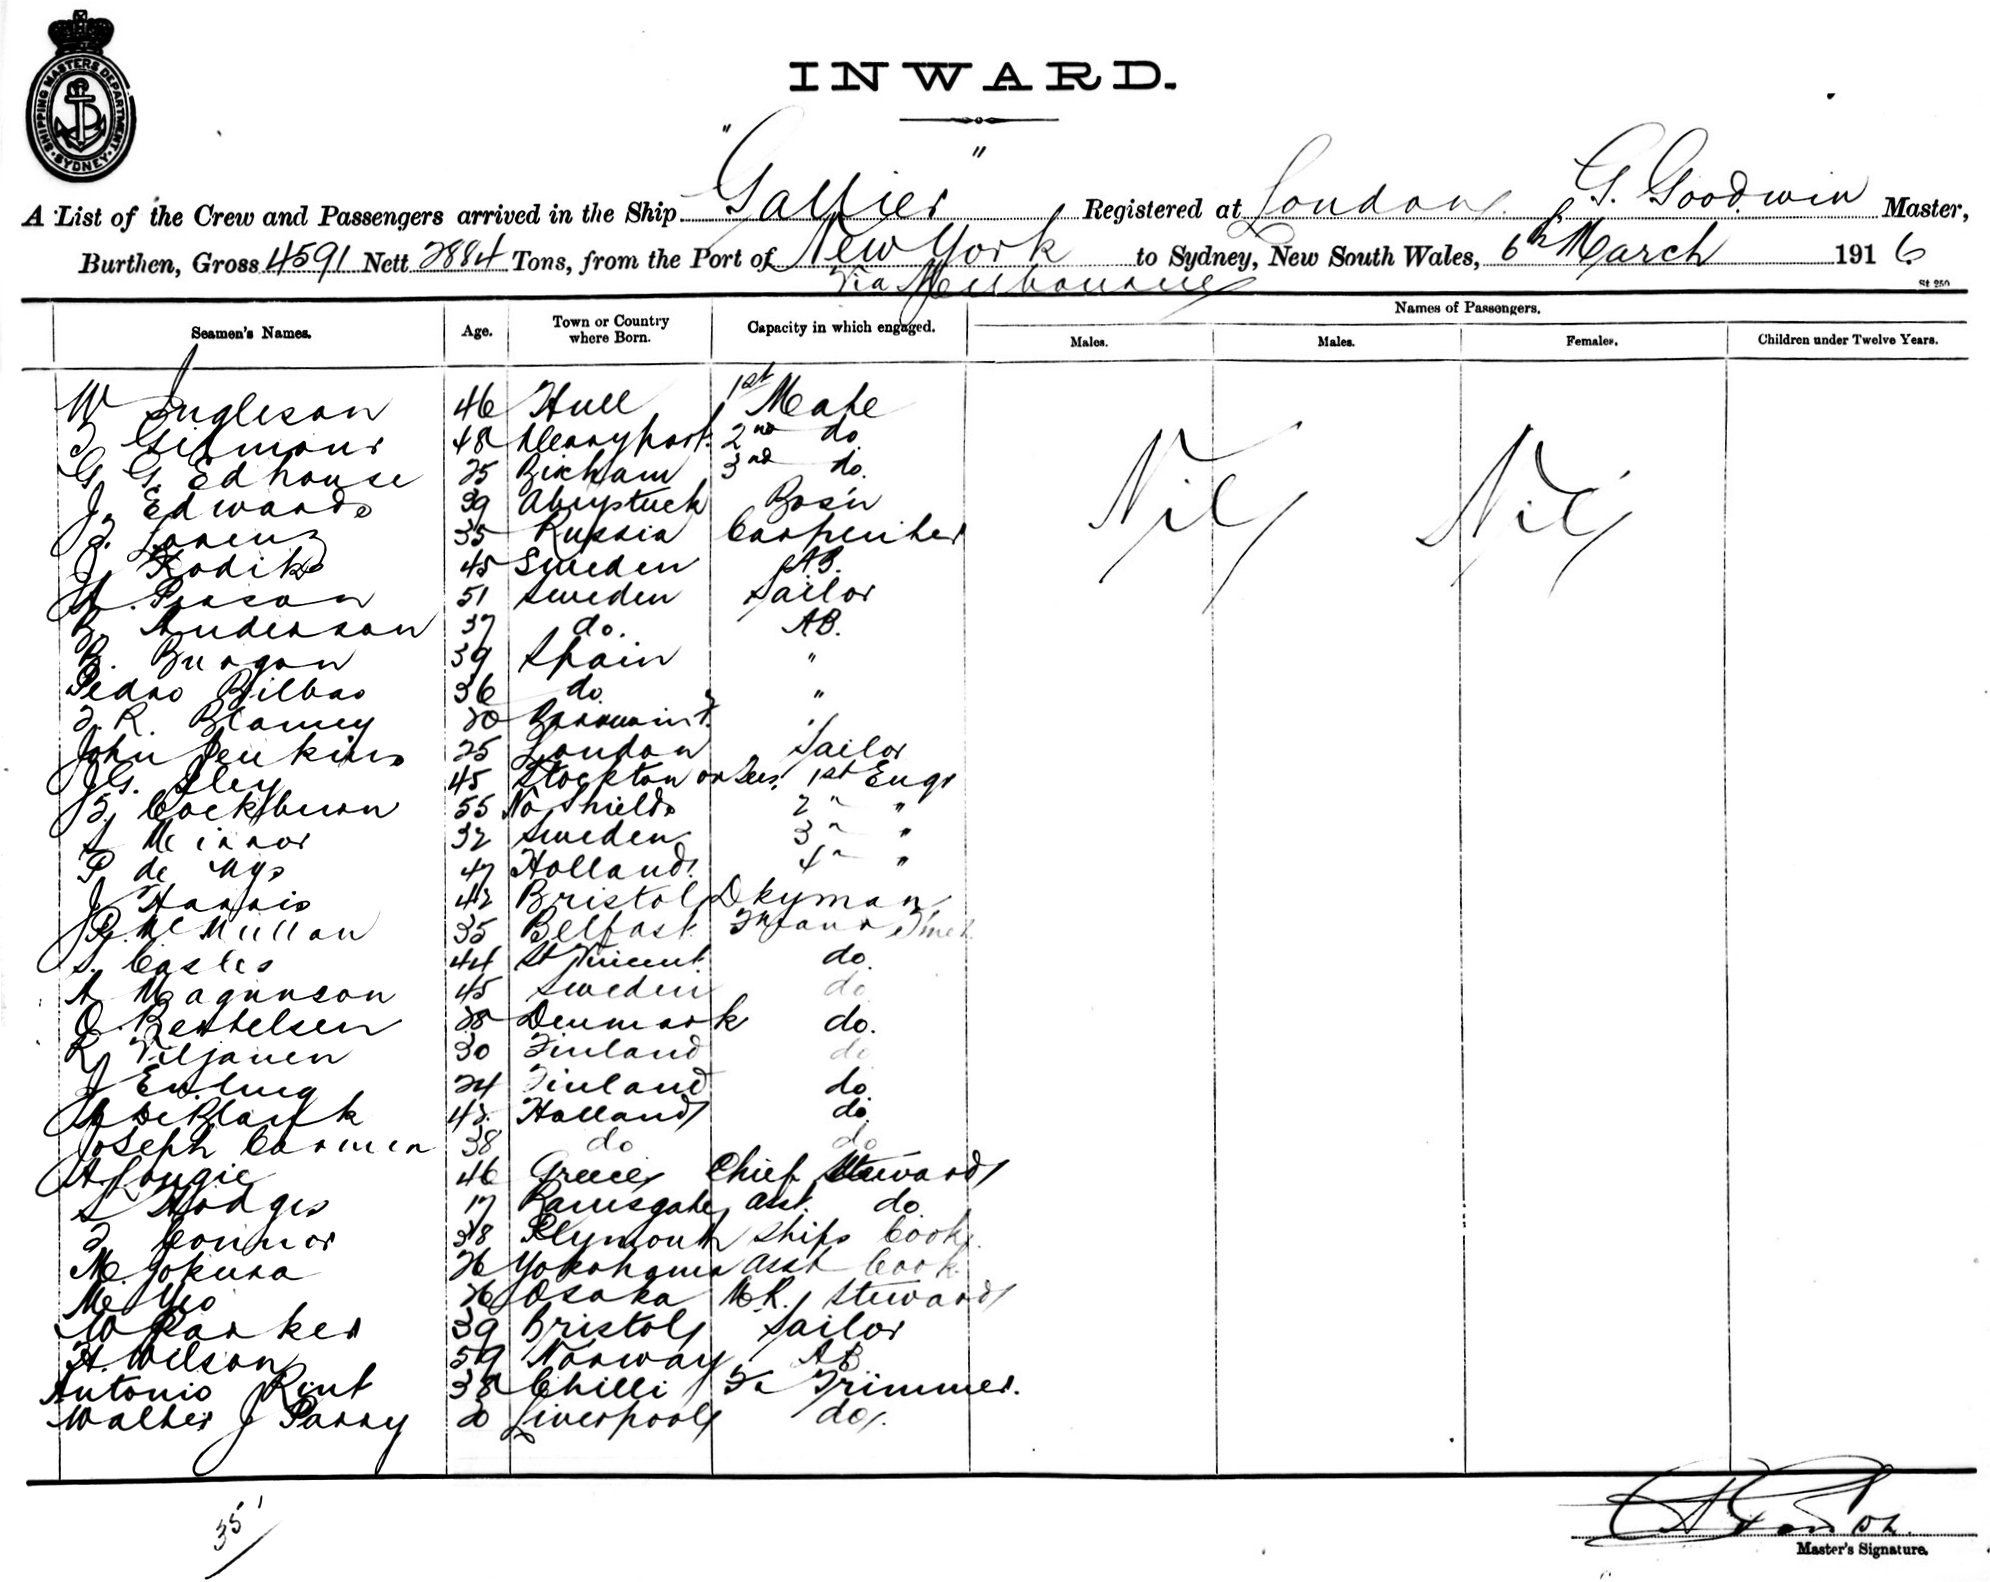 SHIPPING MASTERS DEPARTMENT
· SYDNEY ·
INWARD.
A List of the Crew and Passengers arrived in the Ship "Gallier" Registered at London, G. Goodwin Master,
Burthen, Gross 4591 Nett 2884 Tons, from the Port of New York to Sydney, New South Wales, 6th March 1916.
Via Melbourne
St 250
Seamen's Names. Age. Town or Country where Born. Capacity in which engaged. Names of Passengers.
Males. Males. Females. Children under Twelve Years.
W Ingleson 46 Hull 1st Mate
Gilmour 48 Maryport 2nd do
G. G. Edhouse 25 Bircham 3rd do.
J. Edwards 39 Bos'n
Lorenz 35 Russia Carpenter
J. 45 Sweden AB.
Person 51 Sweden Sailor
Anderson 37 do. AB.
B. Burgon 39 Spain "
Pedro Bilbao 36 do "
R. Blamey 20 "
John Jenkins 25 London Sailor
G. Sley 45 Stockton on Tees. 1st Engr
Cockburn 55 No Shields 2 " "
Minnor 32 Sweden 3 " "
P de Nys 47 Holland. 4 " "
J Harris 42 Bristol Dkyman
McMullan 35 Belfast
S. Casles 44 St Vincent. do.
A Magnuson 45 Sweden do
O. Bertelsen 28 Denmark do.
Viljanen 30 Finland do
J 24 Finland do
De Blank 42. Holland do.
Joseph Carmen 38 do do
A Lougie 46 Greece Chief Steward
S Hodges 17 Ramsgate asst. do.
Connor 38 Plymouth Ships Cook.
M. Yokura 26 Yokohama asst Cook.
M. Yeo 26 Osaka M.R. Steward
W Parker 39 Bristol Sailor
H. Wilson 59 Norway AB
Antonio Rint 38 Chilli Trimmer.
Walter J Parry 20 Liverpool do.
Nil Nil
35
Master's Signature.